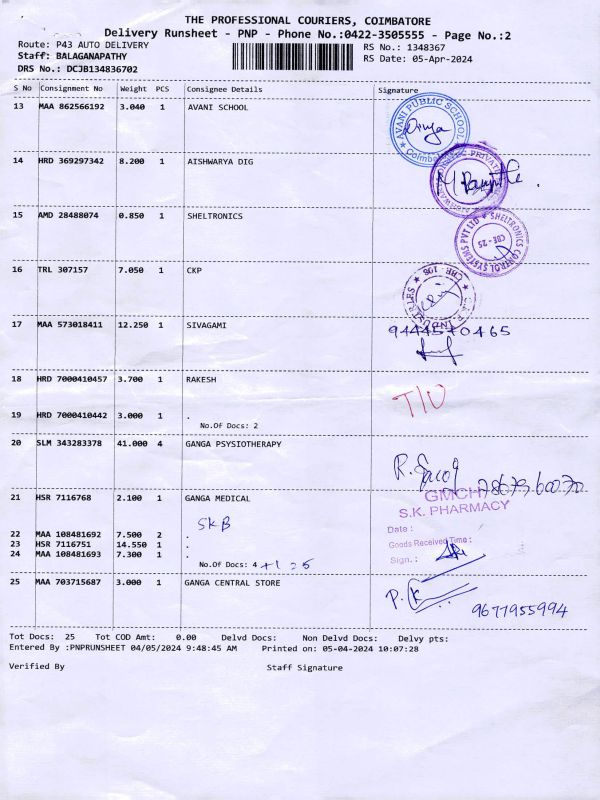 THE PROFESSIONAL COURIERS, COIMBATORE
Delivery Runsheet - PNP - Phone No.:0422-3505555 - Page No.:2
Route: P43 AUTO DELIVERY
Staff: BALAGANAPATHY
DRS No.: DCJB134836702
RS No.: 1348367
RS Date: 05-Apr-2024
S No Consignment No Weight PCS Consignee Details Signature
13 MAA 862566192 3.040 1 AVANI SCHOOL
AVANI PUBLIC SCHOOL
14 HRD 369297342 8.200 1 AISHWARYA DIG
15 AMD 28488074 0.850 1 SHELTRONICS
SHELTRONICS CONTROL SYSTEMS PVT LTD
CBE - 25
16 TRL 307157 7.050 1 CKP
17 MAA 573018411 12.250 1 SIVAGAMI
9444570465
18 HRD 7000410457 3.700 1 RAKESH
T/O
19 HRD 7000410442 3.000 1 .
No.Of Docs: 2
20 SLM 343283378 41.000 4 GANGA PSYIOTHERAPY
21 HSR 7116768 2.100 1 GANGA MEDICAL
GMCH
S.K. PHARMACY
SKB
Date :
22 MAA 108481692 7.500 2 .
23 HSR 7116751 14.550 1 .
Goods Received Time :
24 MAA 108481693 7.300 1 .
Sign. :
No.Of Docs: 4 +1 = 5
25 MAA 703715687 3.000 1 GANGA CENTRAL STORE
9677955994
Tot Docs: 25 Tot COD Amt: 0.00 Delvd Docs: Non Delvd Docs: Delvy pts:
Entered By :PNPRUNSHEET 04/05/2024 9:48:45 AM Printed on: 05-04-2024 10:07:28
Verified By Staff Signature